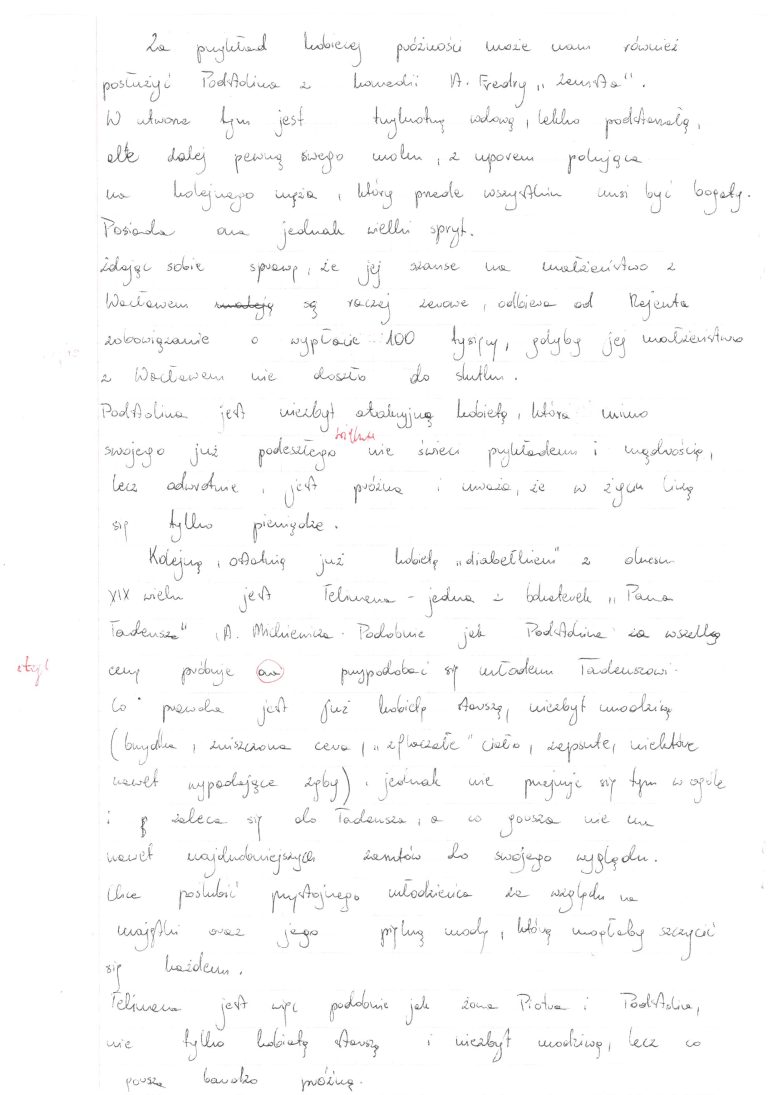 Za przykład kobiecej próżności może nam również
posłużyć Podstolina z komedii A. Fredry „Zemsta".
W utworze tym jest trzykrotną wdową, lekko podstarzałą,
ale dalej pewną swego wieku, z uporem polująca
na kolejnego męża, który przede wszystkim musi być bogaty.
Posiada ona jednak wielki spryt.
Zdając sobie sprawę, że jej szanse na małżeństwo z
Wacławem są raczej zerowe, odbiera od Rejenta
zobowiązanie o wypłacie 100 tysięcy, gdyby jej małżeństwo
z Wacławem nie doszło do skutku.
Podstolina jest niezbyt atrakcyjną kobietą, która mimo
swojego już podeszłego wieku nie świeci przykładem i mądrością,
lecz odwrotnie, jest próżna i uważa, że w życiu liczą
się tylko pieniądze.
Kolejną, ostatnią już kobietą „diabełkiem" z okresu
XIX wieku jest Telimena - jedna z bohaterek „Pana
Tadeusza" A. Mickiewicza. Podobnie jak Podstolina za wszelką
styl
cenę próbuje ona przypodobać się młodemu Tadeuszowi.
Co prawda jest już kobietą starszą, niezbyt urodziwą
(brzydka, zniszczona cera, ciało, zepsute, niektóre
nawet wypadające zęby), jednak nie przejmuje się tym w ogóle
i zaleca się do Tadeusza, a co gorsza nie ma
nawet najdrobniejszych zarzutów do swojego wyglądu.
Chce poślubić przystojnego młodzieńca ze względu na
majątki oraz jego piękną urodę, którą mogłaby szczycić
się każdemu.
Telimena jest więc podobnie jak żona Piotra i Podstolina,
nie tylko kobietą starszą i niezbyt urodziwą, lecz co
gorsza bardzo próżną.